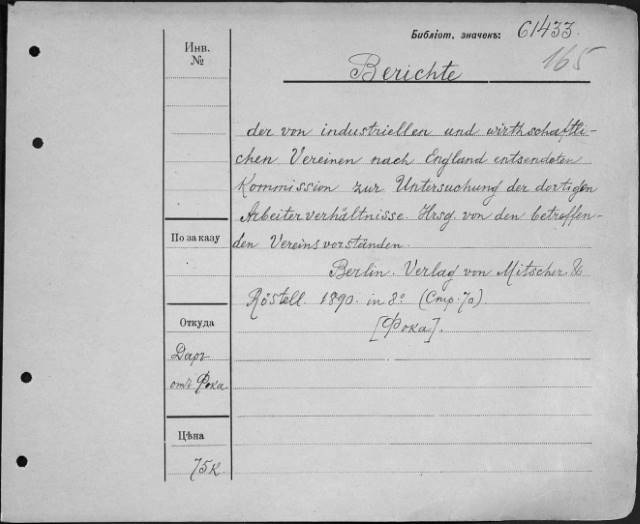 Библіот. значекъ: 61433.
165
Инв.
№
Berichte
der von industriellen und wirthschaftli-
chen Vereinen nach England entsendeten
Kommission zur Untersuchung der dortigen
Arbeiterverhältnisse. Hrsg. von den betreffen-
den Vereinsvorständen.
Berlin. Verlag von Mitscher &
Röstell. 1890. in 8º (Стр. 70)
[Фока].
По заказу
Откуда
Даръ
отъ Фока
Цѣна
75к